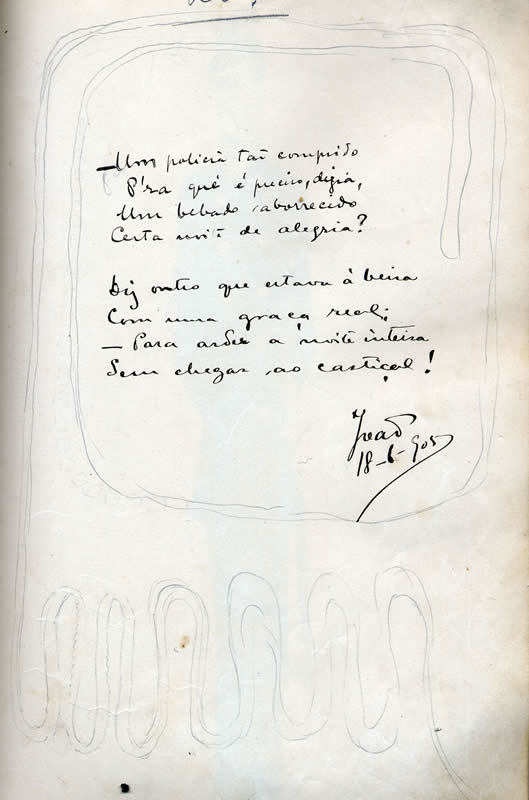 — Um policia tão comprido
P'ra quê é preciso, dizia,
Um bebado aborrecido
Certa noite de alegria?
Diz outro que estava á beira
Com uma graça real:
— Para arder a noite inteira
Sem chegar ao castiçal!
João
18-6-905